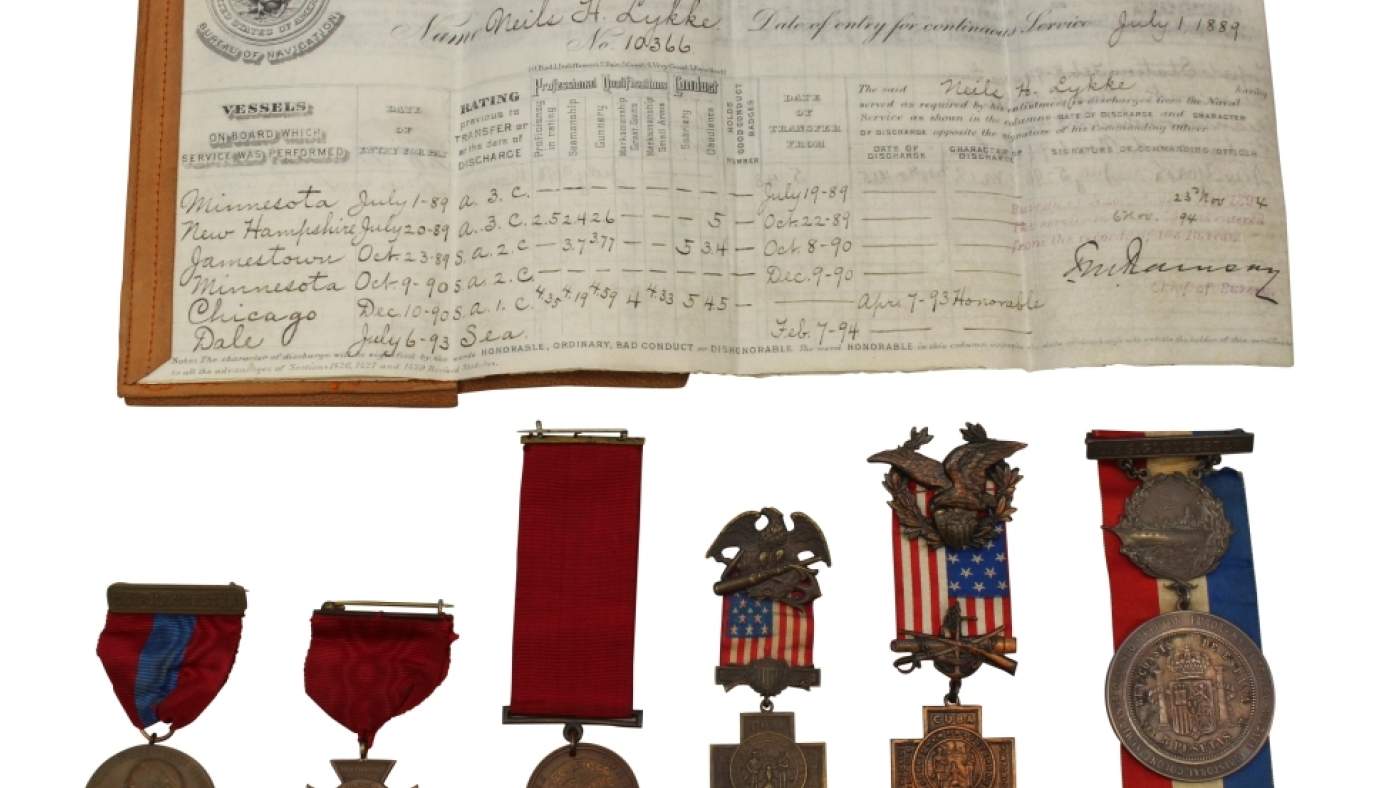 UNITED STATES OF AMERICA
BUREAU OF NAVIGATION
Name Neils H. Lykke Date of entry for continuous Service July 1, 1889
No. 10366
VESSELS, ON BOARD WHICH SERVICE WAS PERFORMED.
DATE OF ENTRY FOR PAY
RATING previous to TRANSFER or at the date of DISCHARGE
Professional Qualifications
Proficiency in rating
Seamanship
Gunnery
Marksmanship Great Guns
Marksmanship Small Arms
Conduct
Sobriety
Obedience
HOLDS GOOD CONDUCT BADGES
NUMBER
DATE OF TRANSFER FROM
The said Neils H. Lykke having
served as required by his enlistment is discharges from the Naval
Service as shown in the columns DATE OF DISCHARGE and CHARACTER
OF DISCHARGE opposite the signature of his Commanding Officer
DATE OF DISCHARGE
CHARACTER OF DISCHARGE
SIGNATURE OF COMMANDING OFFICER
Minnesota July 1-89 a. 3. C. — — — — — — — — July 19-89
New Hampshire July 20-89 a. 3. C. 2.5 2.4 2.6 — — — 5 — Oct. 22-89
Jamestown Oct. 23-89 S. a. 2. C — 3.7 3.77 — — 5 3.4 — Oct. 8-90
Minnesota Oct. 9-90 S. a. 2. C. — — — — — — — — Dec. 9-90
Chicago Dec. 10-90 S. a. 1. C. 4.35 4.19 4.59 4 4.33 5 4.5 — — Apr. 7-93 Honorable
Dale July 6-93 Sea. Feb. 7-94
6 Nov. 94
Chief of Bureau
Note: The character of discharge will be signified by the words HONORABLE, ORDINARY, BAD CONDUCT or DISHONORABLE. The word HONORABLE in this column
to all the advantages of Sections 1426, 1427 and
CUBA
CUBA